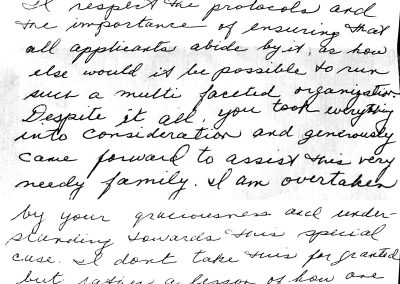 I respect the protocols and
the importance of ensuring that
all applicants abide by it, as how
else would it be possible to run
such a multi faceted organization.
Despite it all, you took everything
into consideration and generously
came forward to assist this very
needy family. I am overtaken
by your graciousness and under-
standing towards this special
case. I dont take this for granted
but rather a lesson of how one